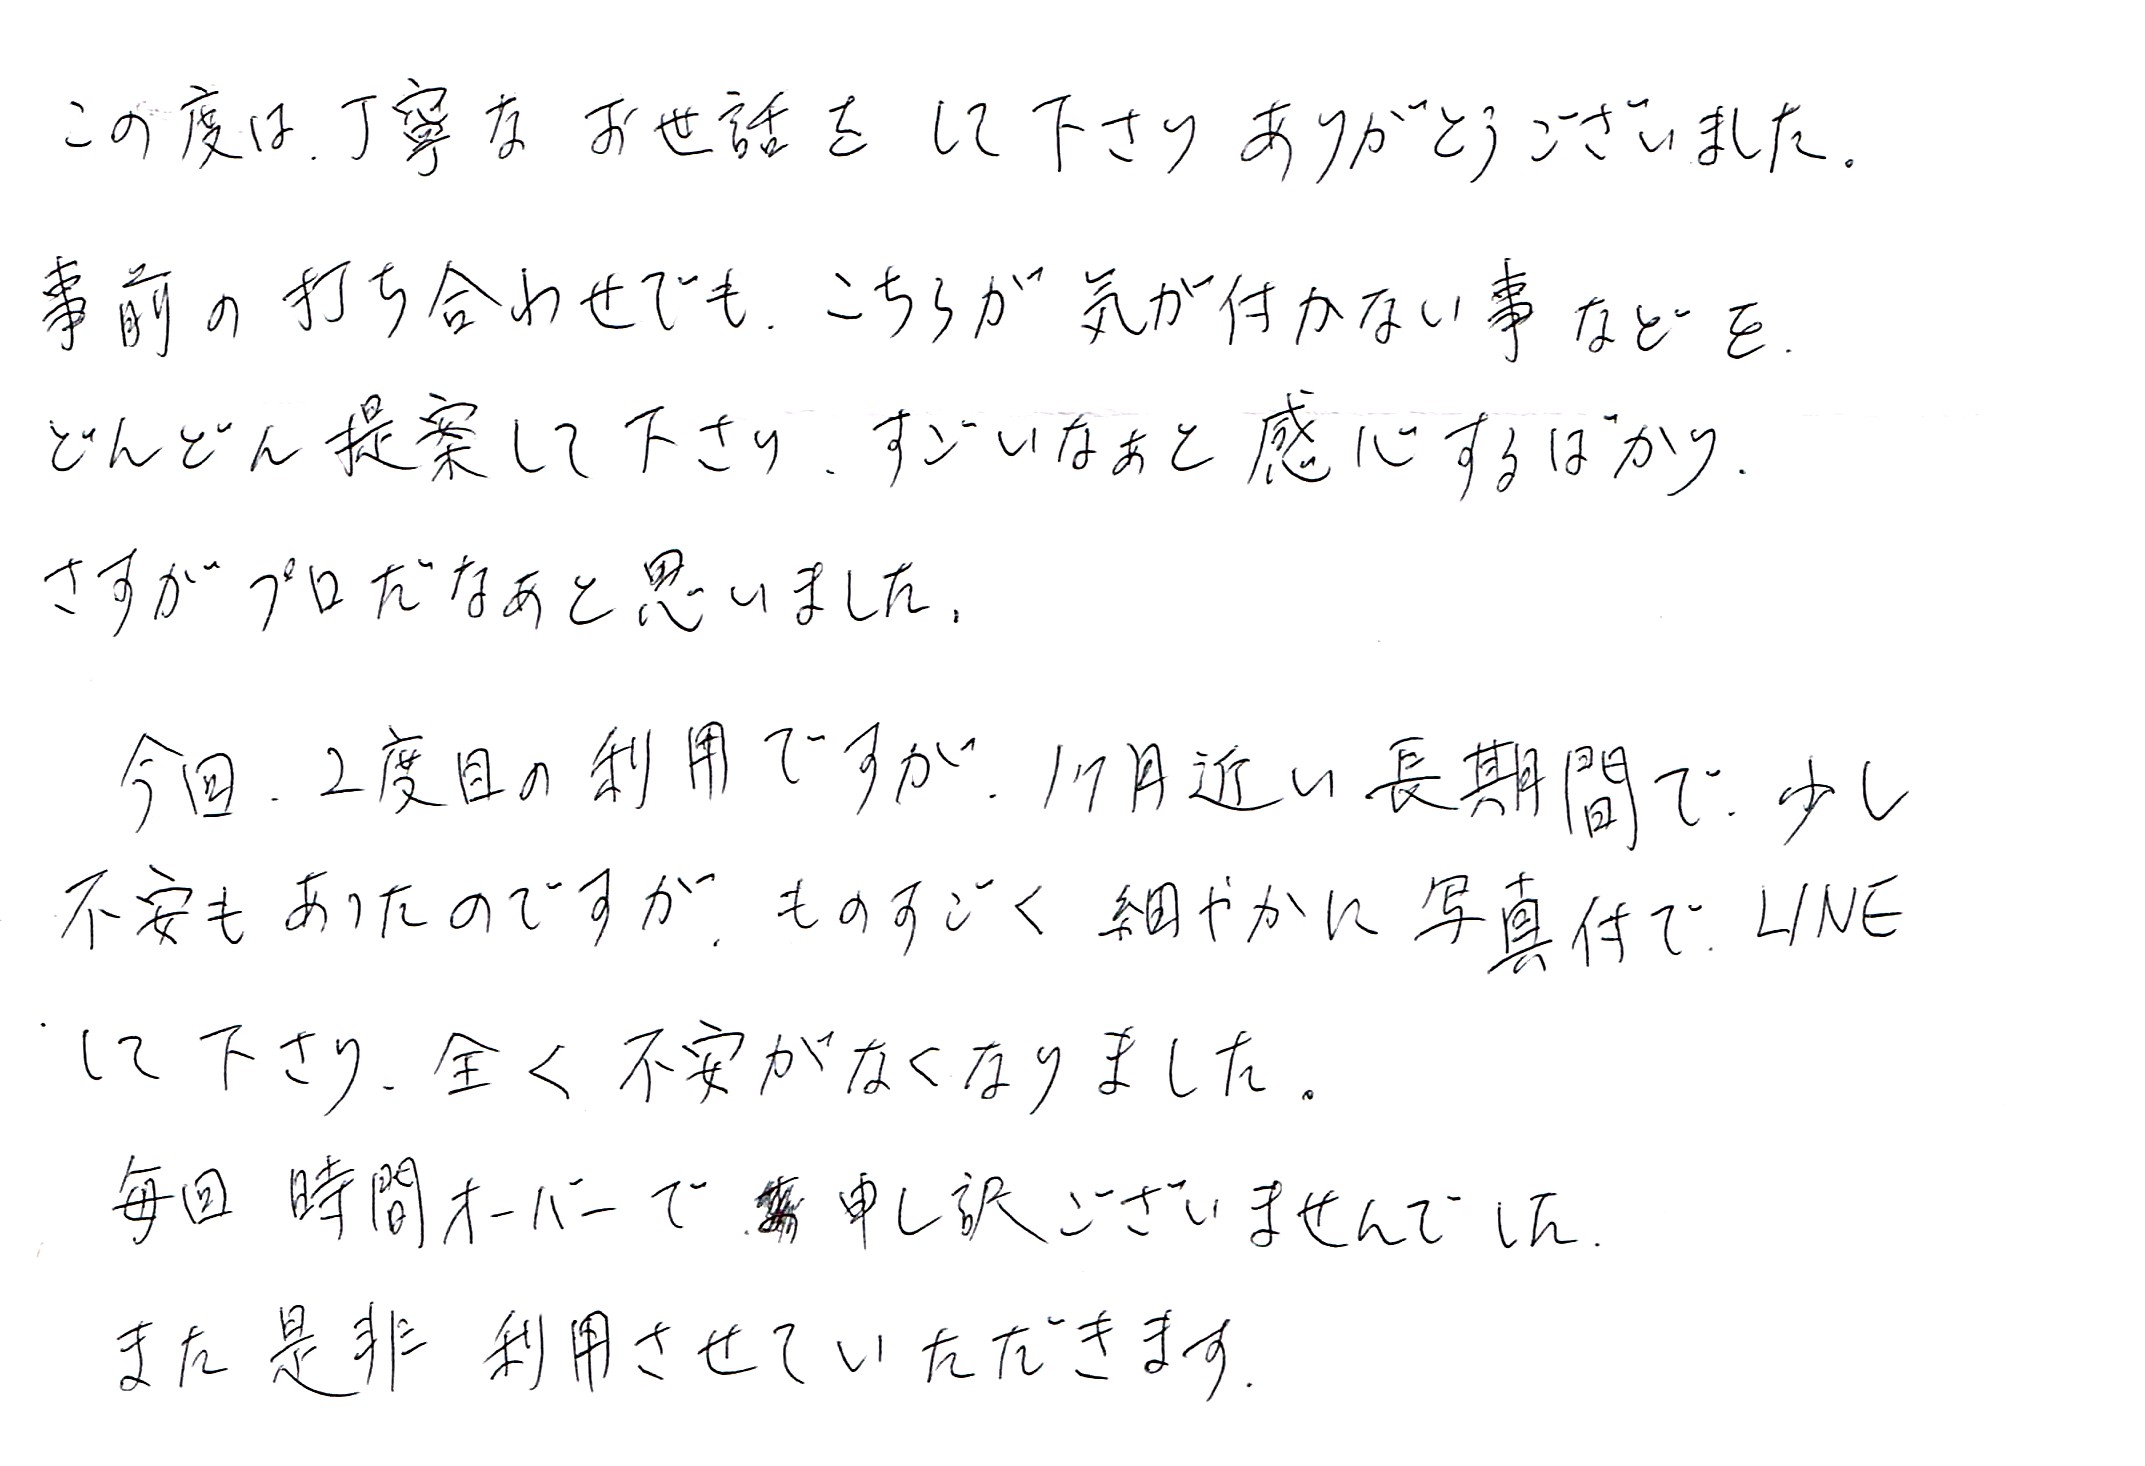 この度は、丁寧なお世話をして下さりありがとうございました。
事前の打ち合わせでも、こちらが気が付かない事などを、
どんどん提案して下さり、すごいなぁと感心するばかり、
さすがプロだなぁと思いました。
今回、2度目の利用ですが、1ヶ月近い長期間で、少し
不安もあったのですが、ものすごく細やかに写真付で、LINE
して下さり、全く不安がなくなりました。
毎回時間オーバーで、申し訳ございませんでした。
また是非利用させていただきます。